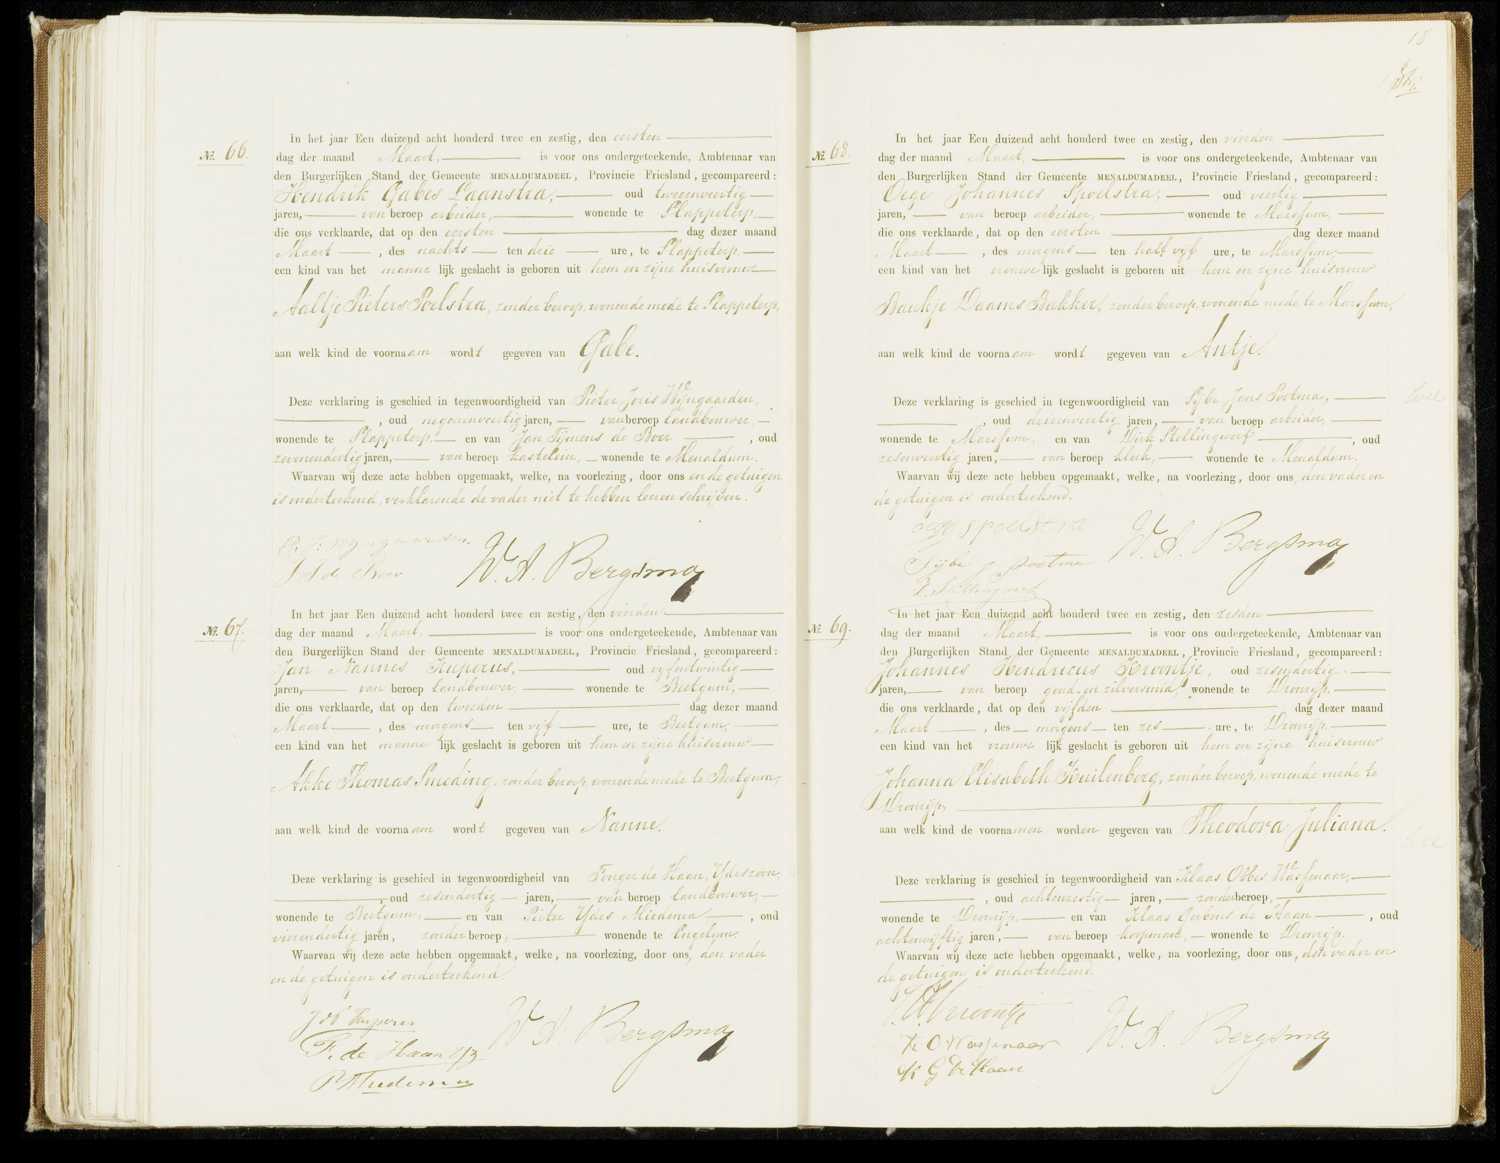 №. 66.
In het jaar Een duizend acht honderd twee en zestig, den eersten
dag der maand Maart, is voor ons ondergeteekende, Ambtenaar van
den Burgerlijken Stand der Gemeente MENALDUMADEEL, Provincie Friesland, gecompareerd:
Hendrik Gabes Laanstra, oud tweeenveertig
jaren, van beroep arbeider, wonende te Slappeterp
die ons verklaarde, dat op den eersten dag dezer maand
Maart, des nachts ten drie ure, te Slappeterp
een kind van het mannelijk geslacht is geboren uit hem en zijne huisvrouw
Aaltje Pieters Poelstra, zonder beroep, wonende mede te Slappeterp,
aan welk kind de voornaam wordt gegeven van Gabe.
Deze verklaring is geschied in tegenwoordigheid van Pieter Joris Wijngaarden,
, oud negenenveertig jaren, van beroep landbouwer,
wonende te Slappeterp, en van Jan Tijmens de Boer, oud
zevenendertig jaren, van beroep kastelein, wonende te Menaldum.
Waarvan wij deze acte hebben opgemaakt, welke, na voorlezing, door ons en de getuigen
is onderteekend, verklarende de vader niet te hebben leeren schrijven.
P. J. Wijngaarden
J T de Boer
W. A. Bergsma
№. 67.
In het jaar Een duizend acht honderd twee en zestig, den vierden
dag der maand Maart, is voor ons ondergeteekende, Ambtenaar van
den Burgerlijken Stand der Gemeente MENALDUMADEEL, Provincie Friesland, gecompareerd:
Jan Nannes Kuperus, oud vijfentwintig
jaren, van beroep landbouwer, wonende te Beetgum,
die ons verklaarde, dat op den tweeden dag dezer maand
Maart, des morgens ten vijf ure, te Beetgum,
een kind van het mannelijk geslacht is geboren uit hem en zijne huisvrouw
Akke Thomas Smeding, zonder beroep, wonende mede te Beetgum,
aan welk kind de voornaam wordt gegeven van Nanne.
Deze verklaring is geschied in tegenwoordigheid van Fonger de Haan, Ydeszoon,
, oud zesendertig jaren, van beroep landbouwer,
wonende te Beetgum, en van Pieter Ydes Miedema, oud
vierendertig jaren, zonder beroep, wonende te Engelum.
Waarvan wij deze acte hebben opgemaakt, welke, na voorlezing, door ons, den vader
en de getuigen is onderteekend.
J N Kuperus
F. de Haan Yz
P Y Miedema
W. A. Bergsma
18
№. 68.
In het jaar Een duizend acht honderd twee en zestig, den vierden
dag der maand Maart, is voor ons ondergeteekende, Ambtenaar van
den Burgerlijken Stand der Gemeente MENALDUMADEEL, Provincie Friesland, gecompareerd:
Oege Johannes Spoelstra, oud veertig
jaren, van beroep arbeider, wonende te Marssum,
die ons verklaarde, dat op den eersten dag dezer maand
Maart, des morgens ten half vijf ure, te Marssum,
een kind van het vrouwelijk geslacht is geboren uit hem en zijne huisvrouw
Baukje Daams Bakker, zonder beroep, wonende mede te Marssum,
aan welk kind de voornaam wordt gegeven van Antje.
Deze verklaring is geschied in tegenwoordigheid van Sijbe Jans Postma,
, oud drieenveertig jaren, van beroep arbeider,
wonende te Marssum, en van Dirk Stellingwerf, oud
zesenveertig jaren, van beroep klerk, wonende te Menaldum.
Waarvan wij deze acte hebben opgemaakt, welke, na voorlezing, door ons, den vader en
de getuigen is onderteekend.
oege spoelstra
Sijbe postma
D. Stellingwerf
W. A. Bergsma
№. 69.
In het jaar Een duizend acht honderd twee en zestig, den zesden
dag der maand Maart, is voor ons ondergeteekende, Ambtenaar van
den Burgerlijken Stand der Gemeente MENALDUMADEEL, Provincie Friesland, gecompareerd:
Johannes Hendricus Kroontje, oud
jaren, van beroep goud en zilversmid, wonende te Dronrijp,
die ons verklaarde, dat op den vijfden dag dezer maand
Maart, des morgens ten zes ure, te Dronrijp,
een kind van het vrouwelijk geslacht is geboren uit hem en zijne huisvrouw
Johanna Elisabeth Kuilenborg, zonder beroep, wonende mede te
Dronrijp,
aan welk kind de voornamen worden gegeven van Theodora Juliana.
Deze verklaring is geschied in tegenwoordigheid van Klaas Obbes Wassenaar,
, oud achtenzestig jaren, zonder beroep,
wonende te Dronrijp, en van Klaas Gerbens de Haan, oud
achtenvijftig jaren, van beroep koopman, wonende te Dronrijp.
Waarvan wij deze acte hebben opgemaakt, welke, na voorlezing, door ons, den vader en
de getuigen is onderteekend.
J. H. Kroontje
K O Wassenaar
K G De Haan
W. A. Bergsma